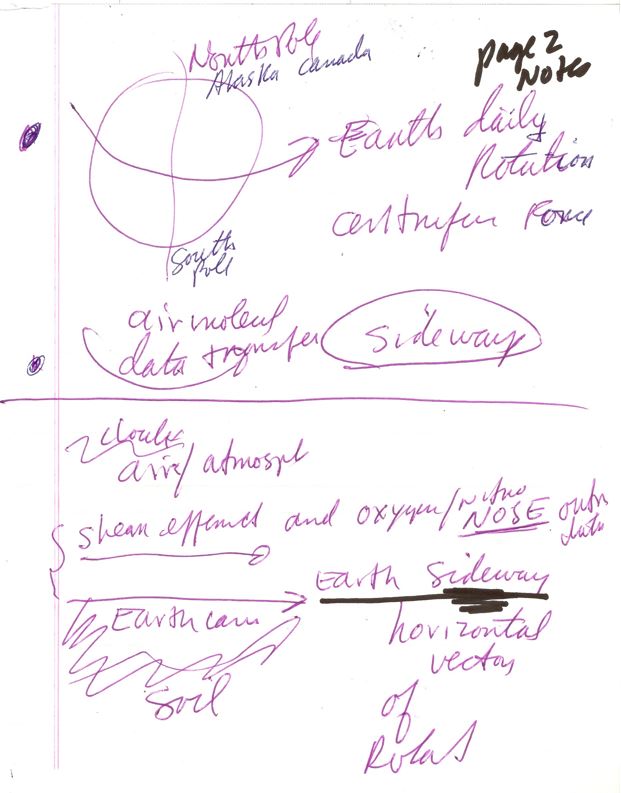 North Pole
Alaska Canada
page 2
Notes
Earth daily
Rotation
Force
South
Pole
air
data transfer
sideway
clouds
air/atmosph
shear and oxygen/nitro
NOSE
data
Earth sideway
Earth
horizontal
vector
soil
of
Rotat